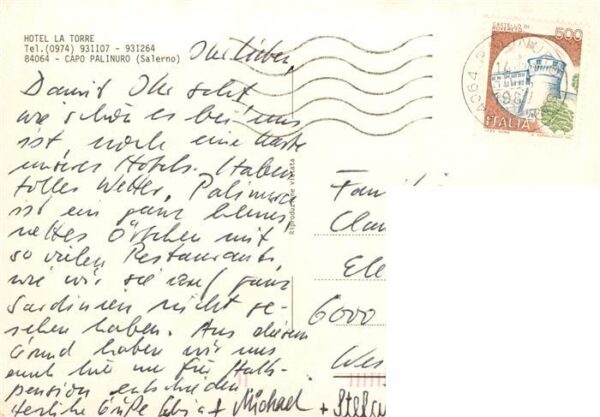 HOTEL LA TORRE
Tel.(0974) 931107 - 931264
84064 - CAPO PALINURO (Salerno)
Ihr Lieben,
Damit Ihr seht,
wie schön es bei uns
ist noch eine Karte
unseres Hotels. Haben
tolles Wetter. Palinuro
ist ein ganz kleines
nettes Örtchen mit
so vielen Restaurants
wie wir sie auf ganz
Sardinien nicht ge-
sehen haben. Aus diesem
Grund haben wir uns
auch hier nur für Halb-
pension entschieden
Herzliche Grüße Michael
+ Stefa
Riproduzione vietata
Famili
Clau
Ele
6000
Wes
CASTELLO DI
ROVERETO
500
ITALIA